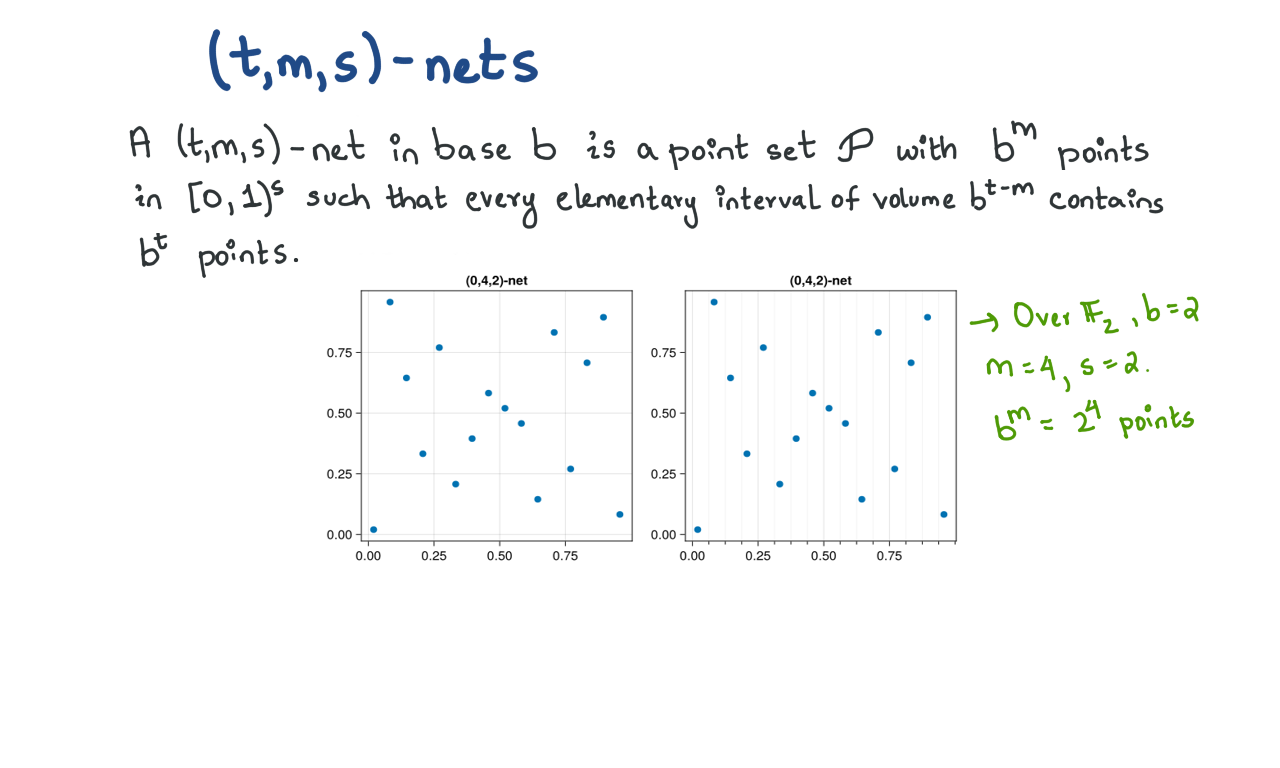 (t,m,s)-nets
A (t,m,s)-net in base b is a point set P with b^m points
in [0,1)^s such that every elementary interval of volume b^{t-m} contains
b^t points.
(0,4,2)-net
0.75
0.50
0.25
0.00
0.00 0.25 0.50 0.75
(0,4,2)-net
0.75
0.50
0.25
0.00
0.00 0.25 0.50 0.75
→ Over 𝔽_2, b=2
m=4, s=2.
b^m = 2^4 points